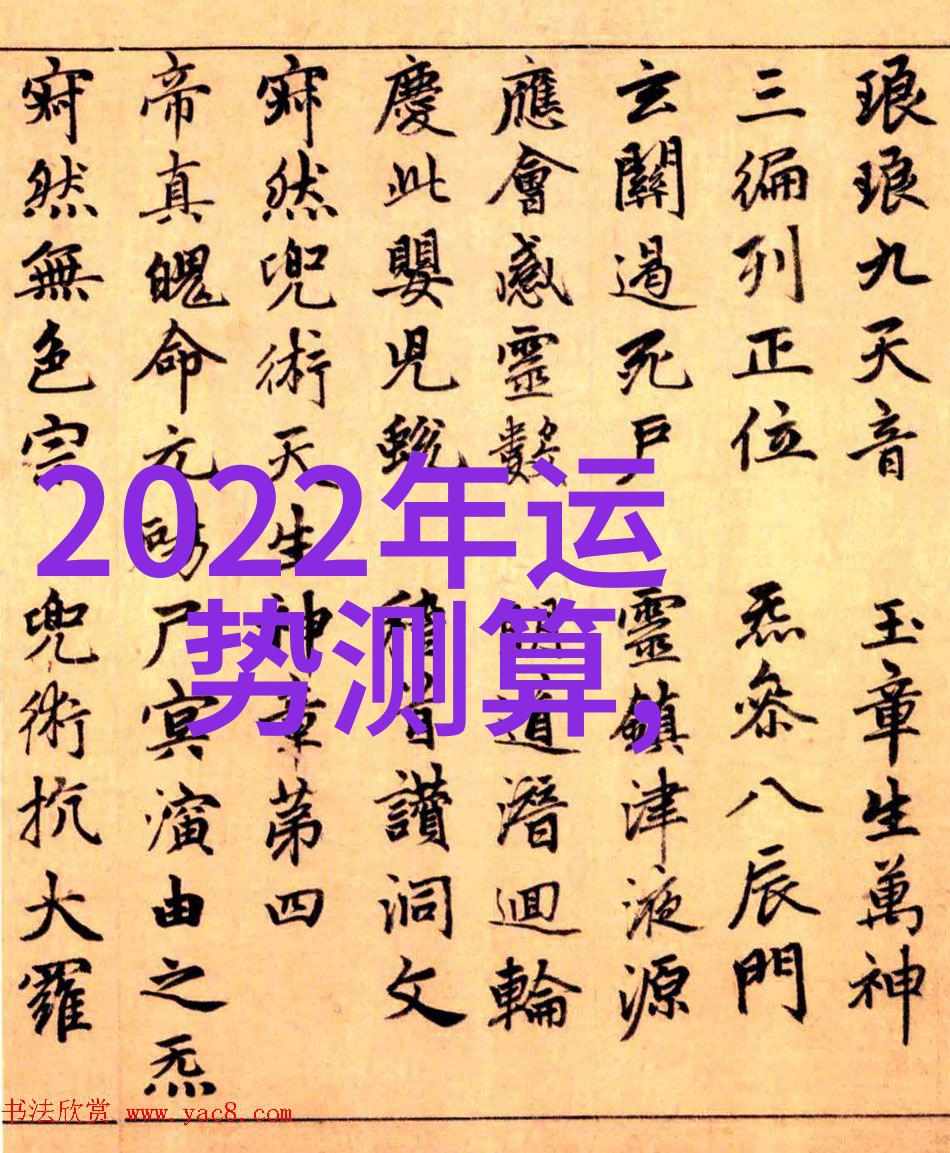 琅琅九天音 玉章生萬神
三編列正位 炁參八辰門
玄關過死戶 靈鎮津液源
應會感靈 道潛迴輪
慶此嬰兒蛻 讃洞文
寂然兜術天生神章第四
帝真魄命元 尸冥演由之炁
寂然無色宗 兜術抗大羅
2022年运
势测算,
书法欣赏 www.yac8.com